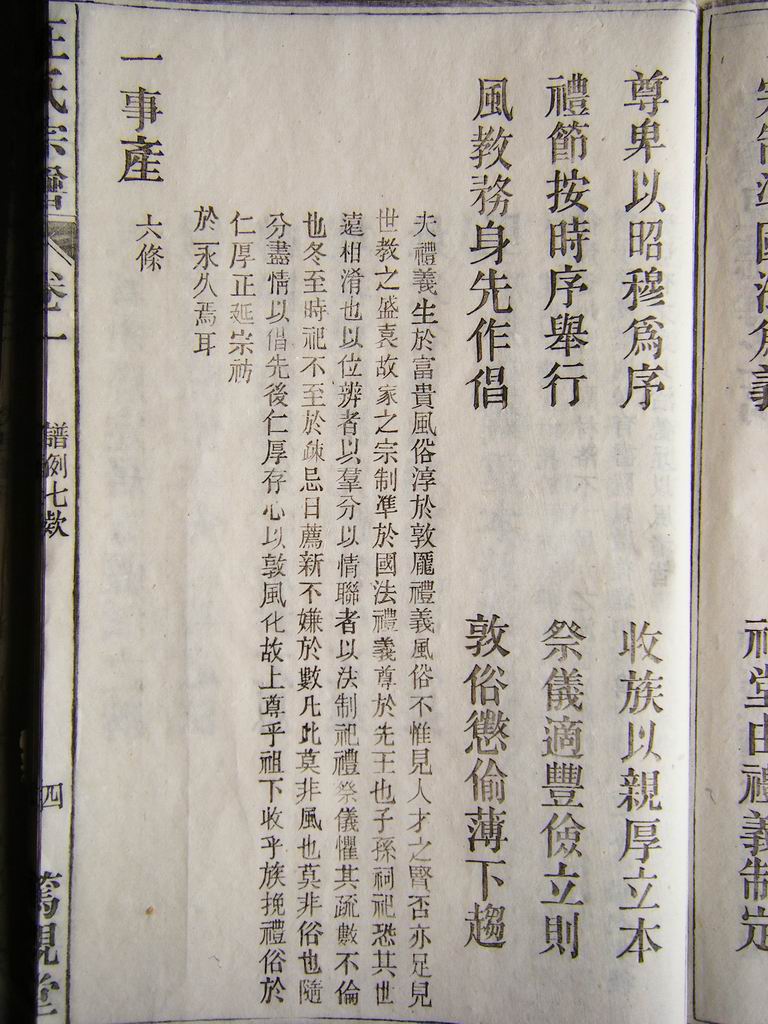 祠堂由禮義制定
尊卑以昭穆爲序
收族以親厚立本
禮節按時序舉行
祭儀適豐儉立則
風教務身先作倡
敦俗懲偷薄下趨
夫禮義生於富貴風俗淳於敦龐禮義風俗不惟見人才之賢否亦足見
世教之盛衰故家之宗制準於國法禮義尊於先王也子孫祠祀恐其世
遠相淆也以位辨者以羣分以情聯者以法制祀禮祭儀懼其疏數不倫
也冬至時祀不至於疎忌日薦新不嫌於數凡此莫非風也莫非俗也隨
分盡情以倡先後仁厚存心以敦風化故上尊乎祖下收乎族挽禮俗於
仁厚正延宗祊
於永久焉耳
一事產
六條
王氏宗譜
卷一
譜例七欵
四
篤親堂